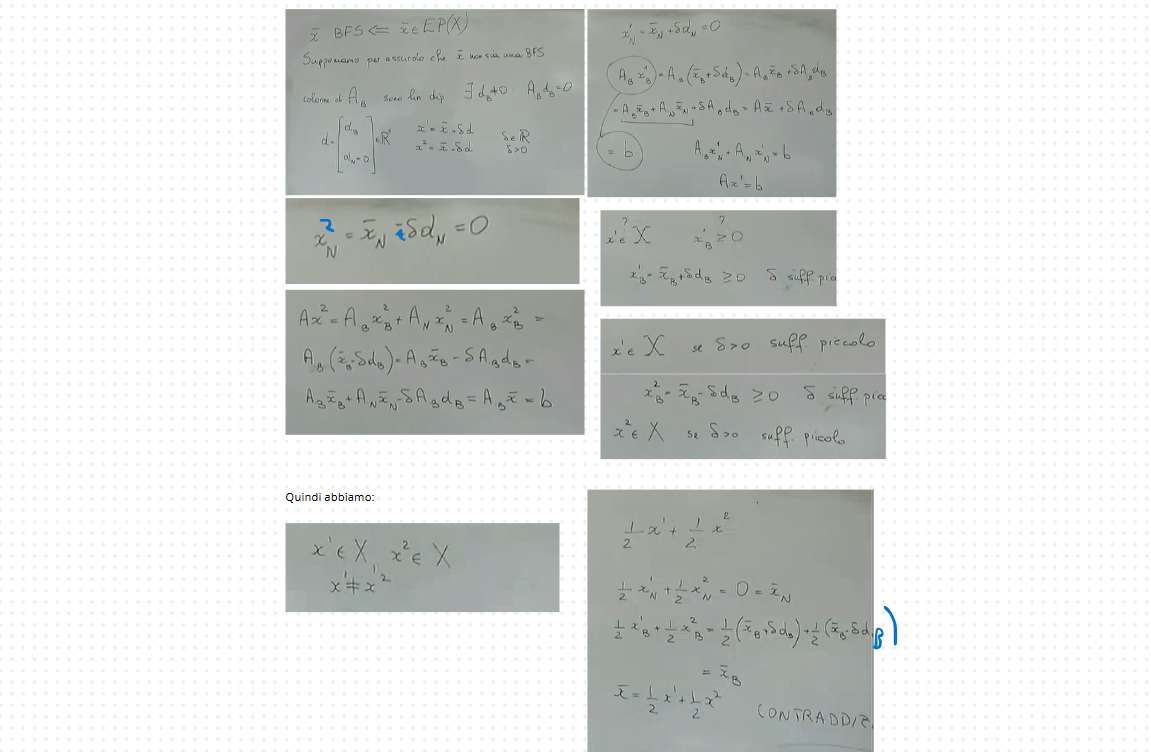 x̄ BFS ⟸ x̄ ∈ EP(X)
Supponiamo per assurdo che x̄ non sia una BFS
colonne di A_B sono lin dip ∃ d_B ≠ 0 : A_B d_B = 0
d = [d_B
d_N = 0] ∈ ℝ
x¹ = x̄ + δd
x² = x̄ - δd
δ ∈ ℝ
δ > 0
x¹_N = x̄_N + δd_N = 0
A_B x¹_B = A_B (x̄_B + δd_B) = A_B x̄_B + δA_B d_B
= A_B x̄_B + A_N x̄_N + δA_B d_B = Ax̄ + δA_B d_B
= b
A_B x¹_N + A_N x¹_N = b
Ax¹ = b
x²_N = x̄_N - δd_N = 0
Ax² = A_B x²_B + A_N x²_N = A_B x²_B =
A_B (x̄_B - δd_B) = A_B x̄_B - δA_B d_B =
A_B x̄_B + A_N x̄_N - δA_B d_B = A_B x̄ = b
x¹ ∈? X x¹_B ≥? 0
x¹_B = x̄_B + δd_B ≥ 0 δ suff. pic
x¹ ∈ X se δ > 0 suff. piccolo
x²_B = x̄_B - δd_B ≥ 0 δ suff. pic
x² ∈ X se δ > 0 suff. piccolo
Quindi abbiamo:
x¹ ∈ X, x² ∈ X
x¹ ≠ x²
1/2 x¹ + 1/2 x²
1/2 x¹_N + 1/2 x²_N = 0 = x̄_N
1/2 x¹_B + 1/2 x²_B = 1/2 (x̄_B + δd_B) + 1/2 (x̄_B - δd_B)
= x̄_B
x̄ = 1/2 x¹ + 1/2 x²
CONTRADDIZ